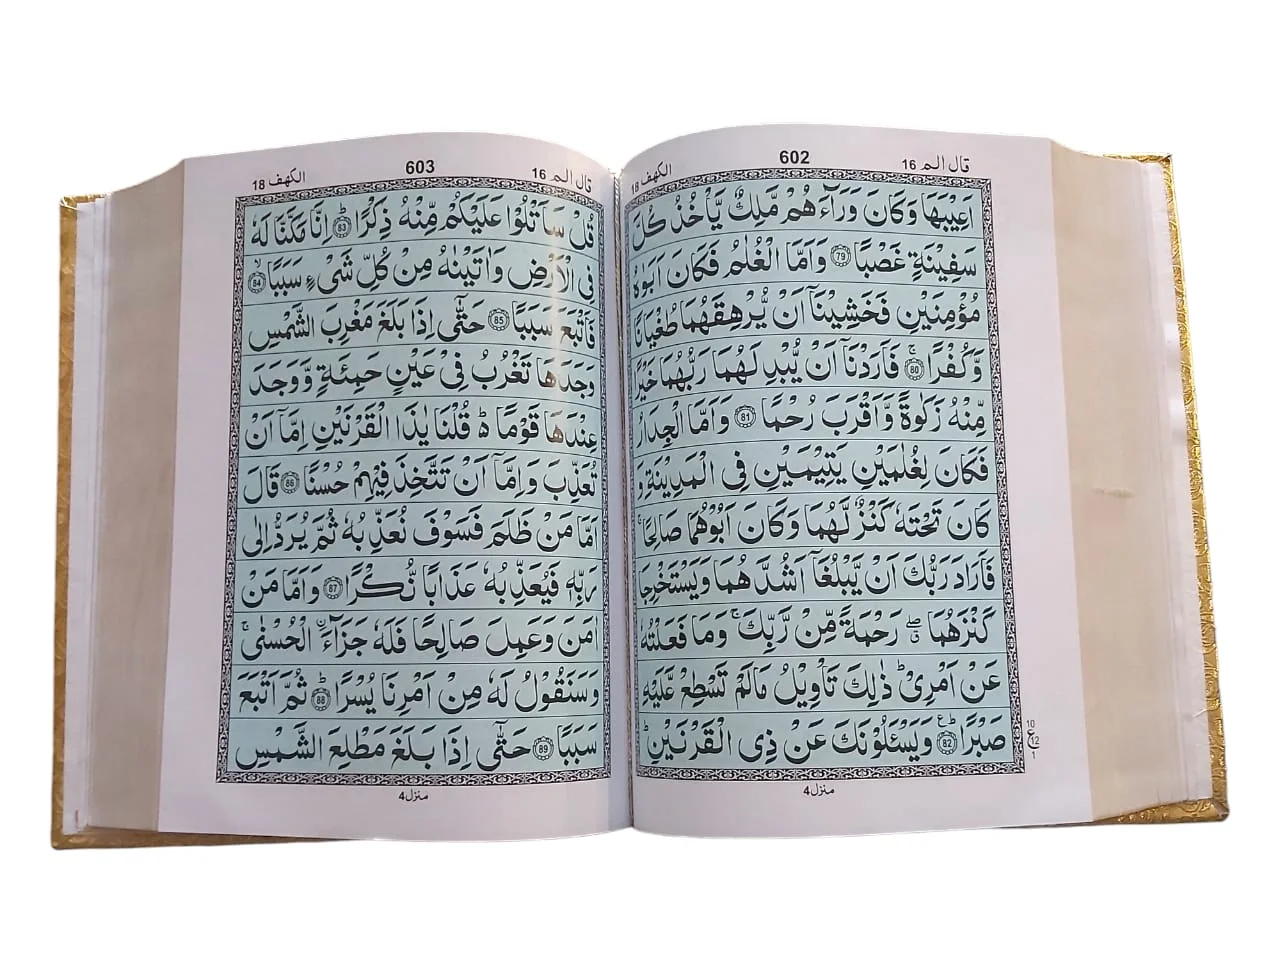 قال الم 16
602
الكهف 18
اَعِيْبَهَا وَكَانَ وَرَآءَهُمْ مَّلِكٌ يَّاْخُذُ كُلَّ
سَفِيْنَةٍ غَصْبًا ﴿79﴾ وَاَمَّا الْغُلٰمُ فَكَانَ اَبَوٰهُ
مُؤْمِنَيْنِ فَخَشِيْنَاۤ اَنْ يُّرْهِقَهُمَا طُغْيَانًا
وَّكُفْرًا ۚ ﴿80﴾ فَاَرَدْنَاۤ اَنْ يُّبْدِلَهُمَا رَبُّهُمَا خَيْرًا
مِّنْهُ زَكٰوةً وَّاَقْرَبَ رُحْمًا ﴿81﴾ وَاَمَّا الْجِدَارُ
فَكَانَ لِغُلٰمَيْنِ يَتِيْمَيْنِ فِى الْمَدِيْنَةِ وَ
كَانَ تَحْتَهٗ كَنْزٌ لَّهُمَا وَكَانَ اَبُوْهُمَا صَالِحًا ۚ
فَاَرَادَ رَبُّكَ اَنْ يَّبْلُغَاۤ اَشُدَّهُمَا وَيَسْتَخْرِجَا
كَنْزَهُمَا ۖ ق رَحْمَةً مِّنْ رَّبِّكَ ۚ وَمَا فَعَلْتُهٗ
عَنْ اَمْرِىْ ؕ ذٰلِكَ تَاْوِيْلُ مَا لَمْ تَسْطِعْ عَّلَيْهِ
صَبْرًا ؕ ﴿82﴾ وَيَسْـَٔلُوْنَكَ عَنْ ذِى الْقَرْنَيْنِ ؕ
10
ع 12
1
منزل 4
قال الم 16
603
الكهف 18
قُلْ سَاَتْلُوْا عَلَيْكُمْ مِّنْهُ ذِكْرًا ؕ ﴿83﴾ اِنَّا مَكَّنَّا لَهٗ
فِى الْاَرْضِ وَاٰتَيْنٰهُ مِنْ كُلِّ شَىْءٍ سَبَبًا ۙ ﴿84﴾
فَاَتْبَعَ سَبَبًا ﴿85﴾ حَتّٰۤى اِذَا بَلَغَ مَغْرِبَ الشَّمْسِ
وَجَدَهَا تَغْرُبُ فِىْ عَيْنٍ حَمِئَةٍ وَّوَجَدَ
عِنْدَهَا قَوْمًا ؕ قُلْنَا يٰذَا الْقَرْنَيْنِ اِمَّاۤ اَنْ
تُعَذِّبَ وَاِمَّاۤ اَنْ تَتَّخِذَ فِيْهِمْ حُسْنًا ﴿86﴾ قَالَ
اَمَّا مَنْ ظَلَمَ فَسَوْفَ نُعَذِّبُهٗ ثُمَّ يُرَدُّ اِلٰى
رَبِّهٖ فَيُعَذِّبُهٗ عَذَابًا نُّكْرًا ﴿87﴾ وَاَمَّا مَنْ
اٰمَنَ وَعَمِلَ صَالِحًا فَلَهٗ جَزَآءَ اۨلْحُسْنٰى ۚ
وَسَنَقُوْلُ لَهٗ مِنْ اَمْرِنَا يُسْرًا ؕ ﴿88﴾ ثُمَّ اَتْبَعَ
سَبَبًا ﴿89﴾ حَتّٰۤى اِذَا بَلَغَ مَطْلِعَ الشَّمْسِ
منزل 4